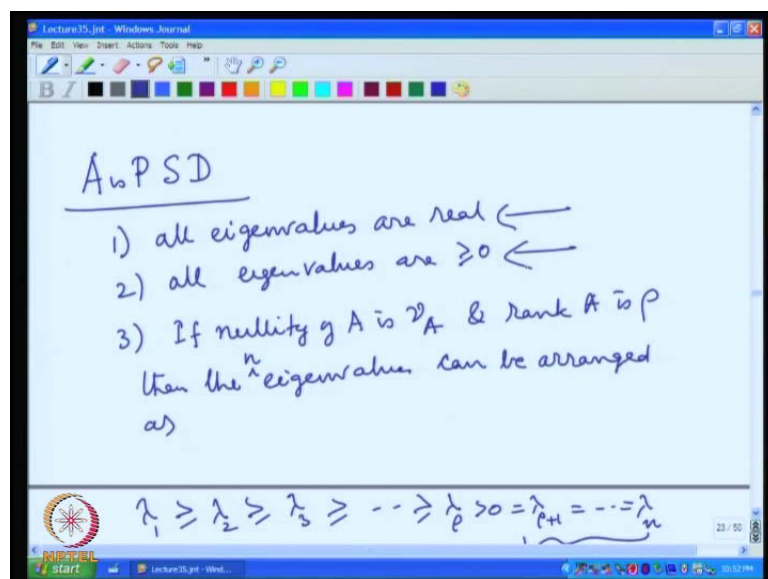 Lecture35.jnt - Windows Journal
File Edit View Insert Actions Tools Help
B I
A is PSD
1) all eigenvalues are real ←
2) all eigenvalues are ≥0 ←
3) If nullity of A is ν_A & rank A is ρ
then the n eigenvalues can be arranged
as
λ_1 ≥ λ_2 ≥ λ_3 ≥ -- ≥ λ_ρ >0 = λ_ρ+1 = --- = λ_n
23 / 50
NPTEL
start Lecture35.jnt - Wind... 10:52 PM